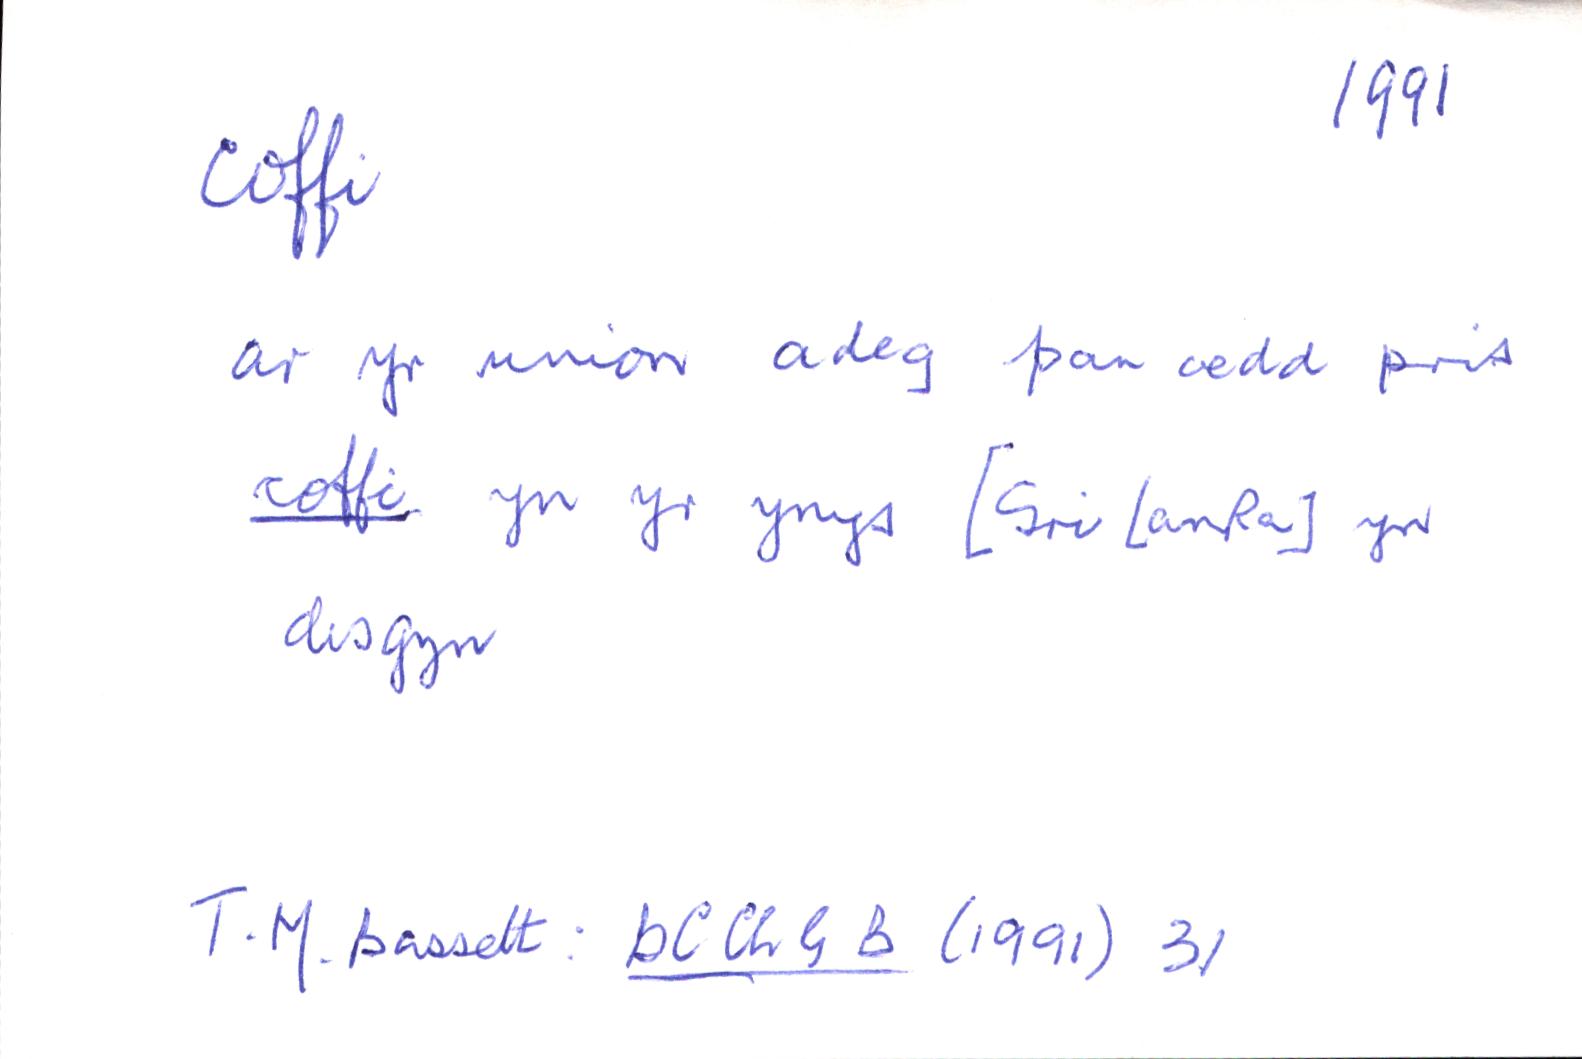 1991
Coffi
ar yr union adeg pan oedd pris
coffi yn yr ynys [Sri Lanka] yn
disgyn
T.M. Bassett: DCChGB (1991) 31